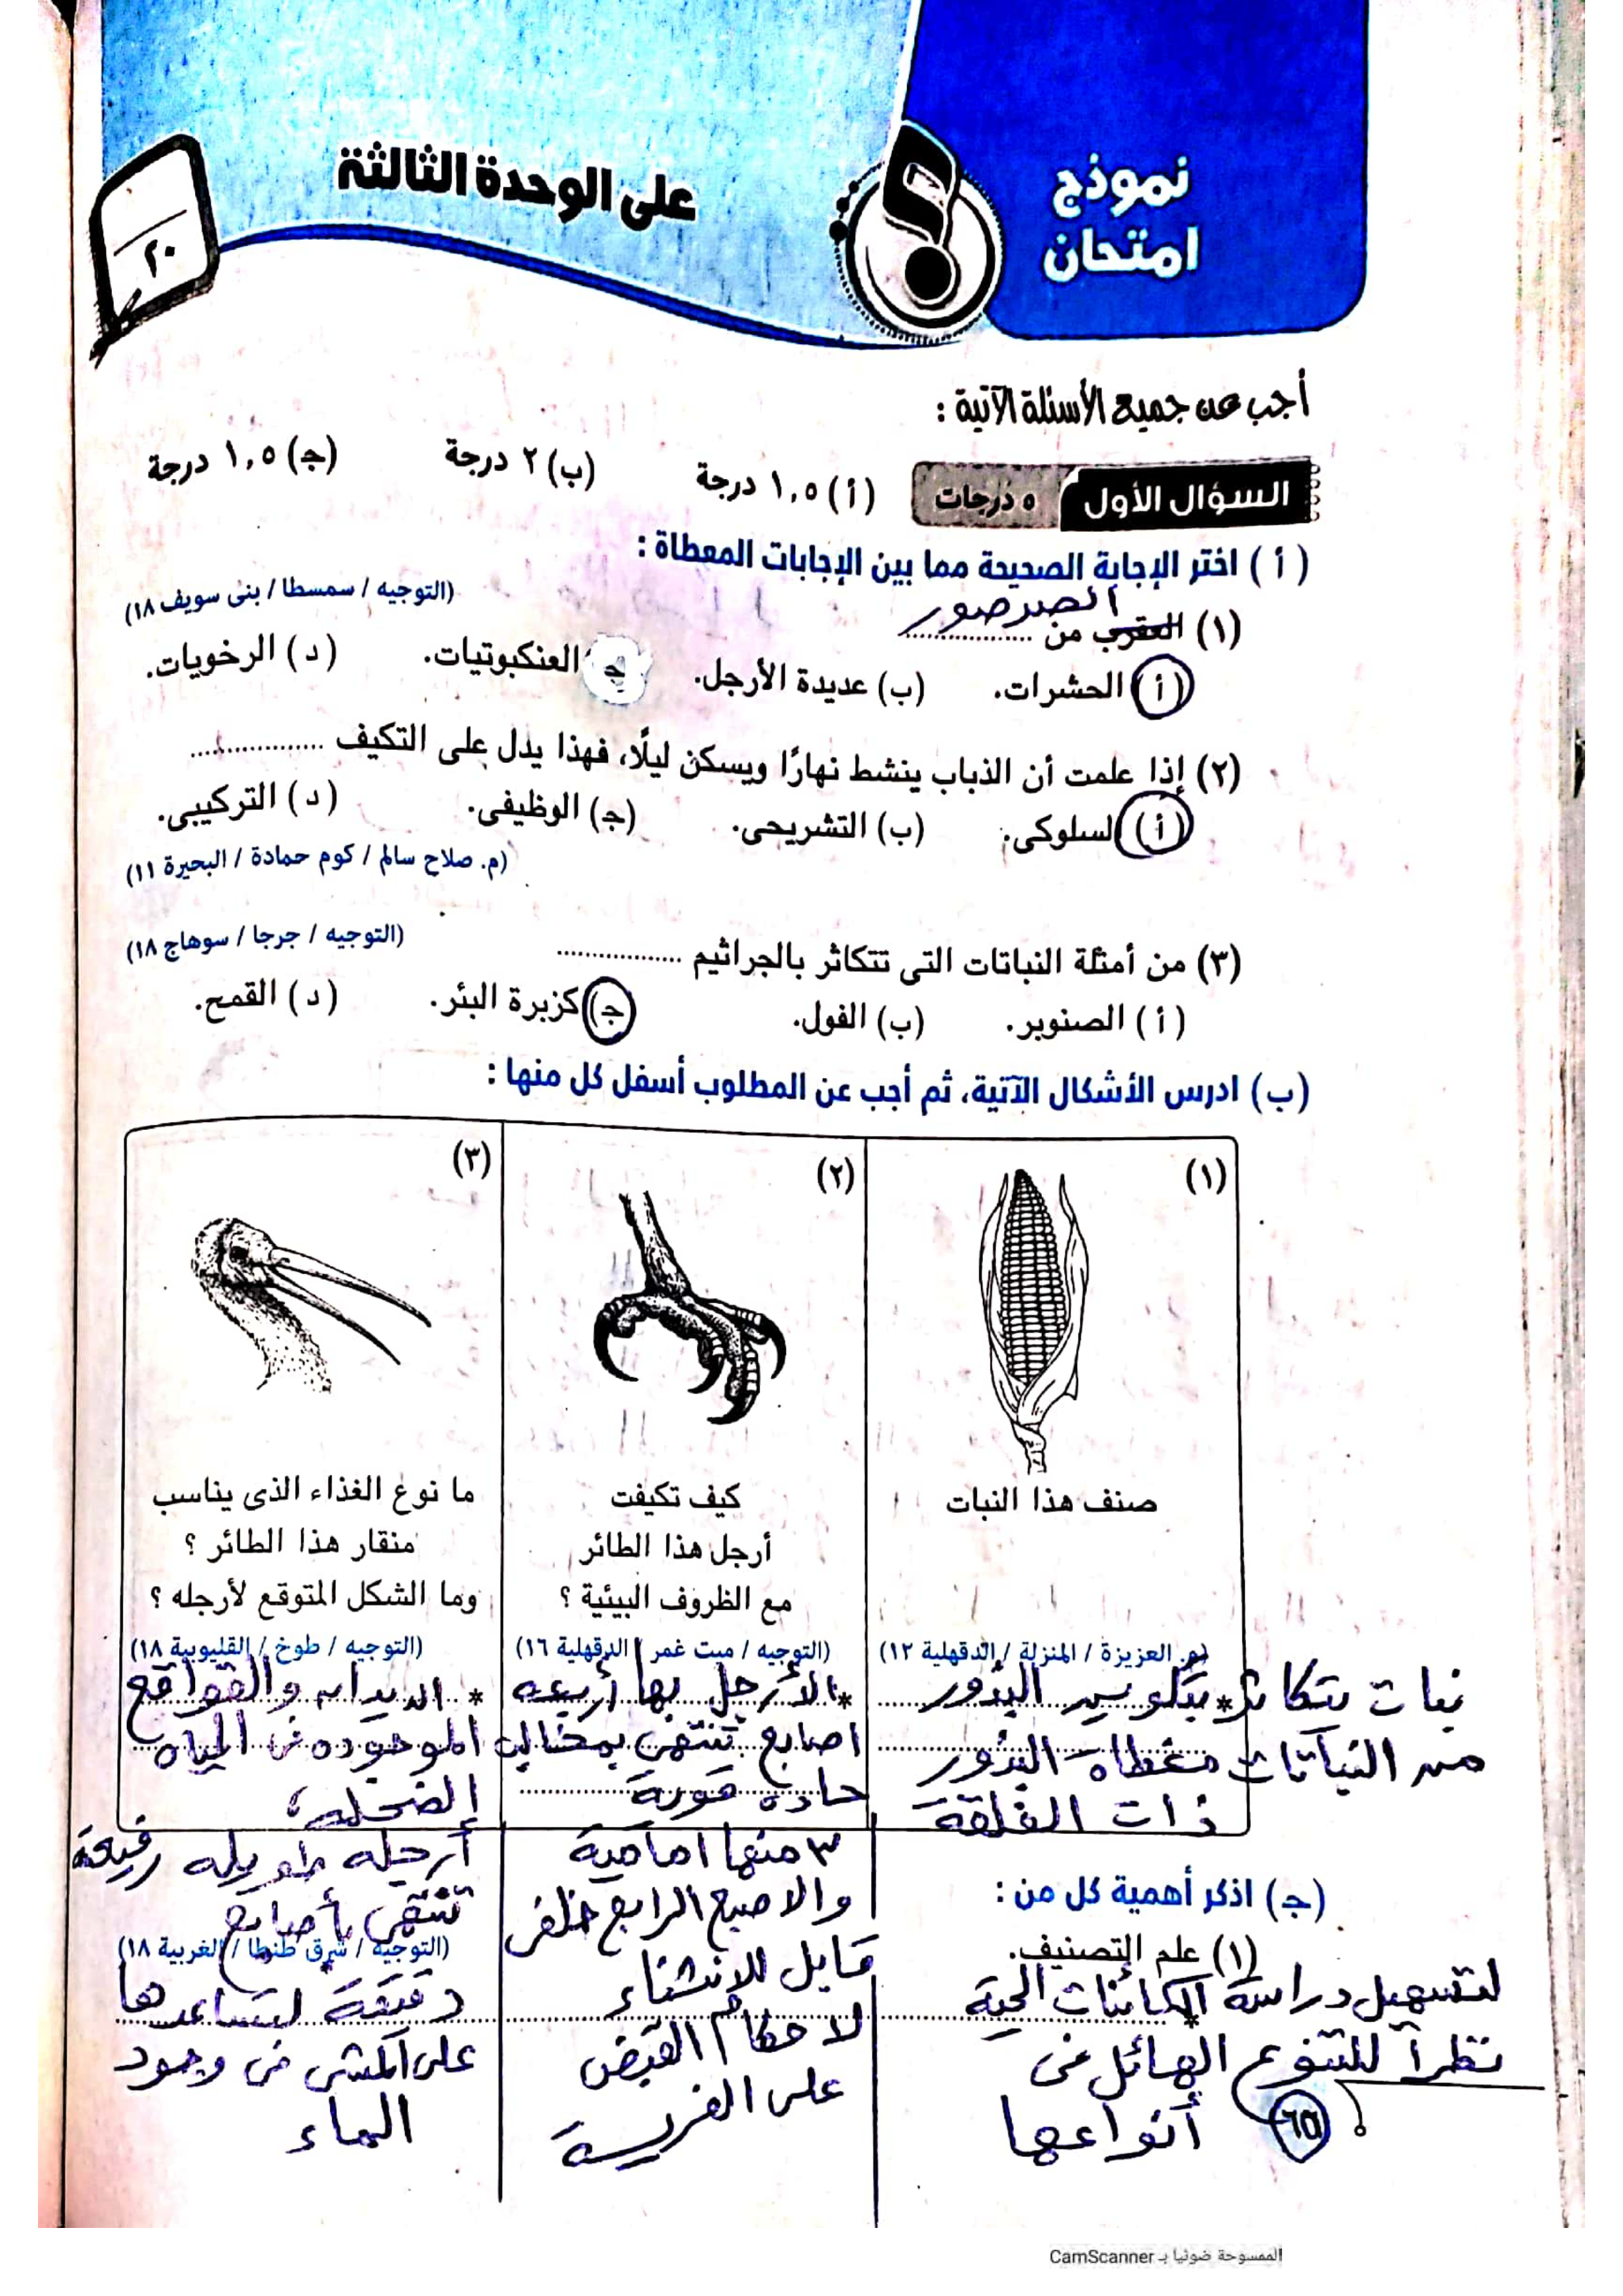 نموذج
امتحان
على الوحدة الثالثة
٢٠
أجب عن جميع الأسئلة الآتية :
السؤال الأول ٥ درجات (أ) ١,٥ درجة (ب) ٢ درجة (ج) ١,٥ درجة
(أ) اختر الإجابة الصحيحة مما بين الإجابات المعطاة :
(التوجيه / سمسطا / بنى سويف ١٨)
الصرصور
(١) العقرب من ................
(أ) الحشرات. (ب) عديدة الأرجل. (ج) العنكبوتيات. (د) الرخويات.
(٢) إذا علمت أن الذباب ينشط نهارًا ويسكن ليلًا، فهذا يدل على التكيف ................
(أ) السلوكى. (ب) التشريحى. (ج) الوظيفى. (د) التركيبى.
(م. صلاح سالم / كوم حمادة / البحيرة ١١)
(٣) من أمثلة النباتات التى تتكاثر بالجراثيم ................ (التوجيه / جرجا / سوهاج ١٨)
(أ) الصنوبر. (ب) الفول. (ج) كزبرة البئر. (د) القمح.
(ب) ادرس الأشكال الآتية، ثم أجب عن المطلوب أسفل كل منها :
(١)
صنف هذا النبات
(م. العزيزة / المنزلة / الدقهلية ١٢)
نبات يتكاثر * بتكوين البذور
من النباتات مغطاة البذور
ذات الفلقة
(٢)
كيف تكيفت
أرجل هذا الطائر
مع الظروف البيئية ؟
(التوجيه / ميت غمر / الدقهلية ١٦)
* الأرجل بها أربعه
اصابع تنتهى بمخالب
حاده قوية
٣ منها امامية
والاصبع الرابع خلفى
قابل للانثناء
لاحكام القبض
على الفريسة
(٣)
ما نوع الغذاء الذى يناسب
منقار هذا الطائر ؟
وما الشكل المتوقع لأرجله ؟
(التوجيه / طوخ / القليوبية ١٨)
* الديدان والقواقع
الموجوده فى المياه
الضحله،
أرجله طويله رفيعة
تنتهى بأصابع
دقيقة لتساعدها
على المشى فى وجود
الماء
(ج) اذكر أهمية كل من :
(١) علم التصنيف. (التوجيه / شرق طنطا / الغربية ١٨)
* لتسهيل دراسة الكائنات الحية
نظرآ للتنوع الهائل فى
أنواعها
١٥٦
الممسوحة ضوئيا بـ CamScanner